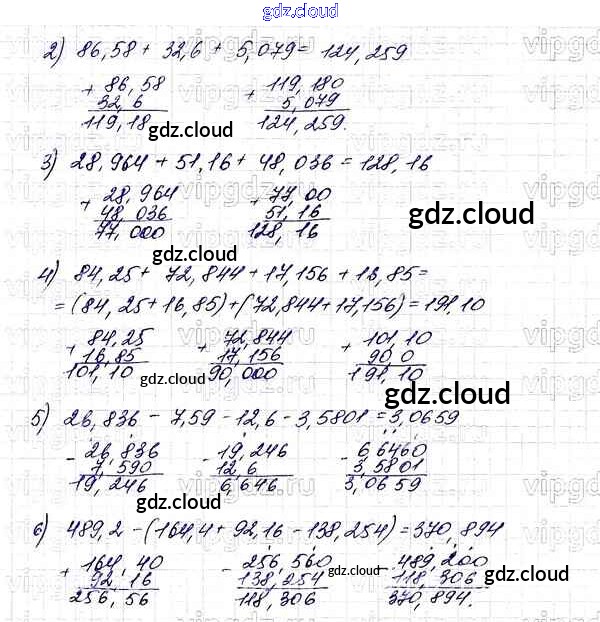 gdz.cloud
2) 86,58 + 32,6 + 5,079 = 124,259
+ 86,58 + 119,180
32,6 5,079
119,18 gdz.cloud 124,259.
3) 28,964 + 51,16 + 48,036 = 128,16
+ 28,964 + 77,00
48,036 51,16 gdz.cloud
77,000 gdz.cloud 128,16
4) 84,25 + 72,844 + 17,156 + 16,85 =
= (84,25 + 16,85) + (72,844 + 17,156) = 191,10
+ 84,25 + 72,844 + 101,10
16,85 17,156 90,0
101,10 gdz.cloud 90,000 gdz.cloud 191,10
5) 26,836 - 7,59 - 12,6 - 3,5801 = 3,0659
- 26,836 - 19,246 - 6,6460 gdz.cloud
7,590 12,6 3,5801
19,246 6,646 3,0659
gdz.cloud
6) 489,2 - (164,4 + 92,16 - 138,254) = 370,894
+ 164,40 - 256,560 - 489,200
92,16 gdz.cloud 138,254 gdz.cloud 118,306
256,56 118,306 370,894.